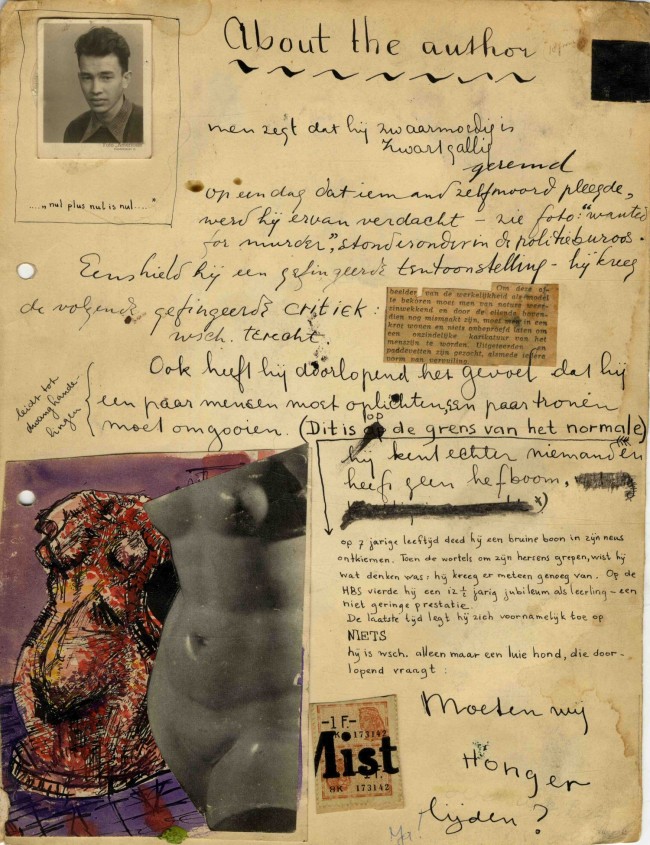 About the author
„nul plus nul is nul....
men zegt dat hij zwaarmoedig is
zwartgallig
geremd
op een dag dat iemand zelfmoord pleegde,
werd hij ervan verdacht – zie foto: "wanted
for murder", stond eronder in de politieburoos.
Eens hield hij een gefingeerde tentoonstelling – hij kreeg
de volgende gefingeerde critiek:
wsch. terecht.
Om deze af-
beelder van de werkelijkheid als model
te bekoren moet men van nature weer-
zinwekkend en door de ellende boven-
dien nog mismaakt zijn, moet men in een
krot wonen en niets onbeproefd laten om
een onzindelijke karikatuur van het
menszijn te worden. Uitgeteerden en
paddevetten zijn gezocht, alsmede iedere
vorm van vervuiling.
Ook heeft hij doorlopend het gevoel dat hij
een paar mensen moet oplichten, een paar tronen
moet omgooien. (Dit is op de grens van het normale)
leidt tot
dwanghande-
lingen
hij kent echter niemand en
heeft geen hefboom.
x)
op 7 jarige leeftijd deed hij een bruine boon in zijn neus
ontkiemen. Toen de wortels om zijn hersens grepen, wist hij
wat denken was: hij kreeg er meteen genoeg van. Op de
HBS vierde hij een 12 ½ jarig jubileum als leerling – een
niet geringe prestatie.
De laatste tijd legt hij zich voornamelijk toe op
NIETS
hij is wsch. alleen maar een luie hond, die door-
lopend vraagt:
Moeten wij
Honger
lijden?
–1 F.–
BK 173142
Mist
BK 173142